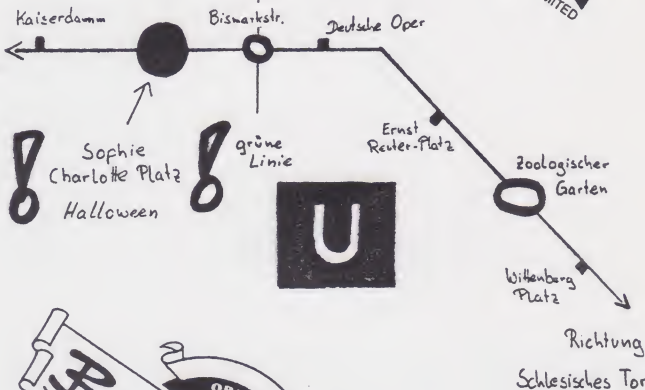 MITED
Kaiserdamm
Bismarkstr.
Deutsche Oper
Sophie
Charlotte Platz
Halloween
grüne
Linie
Ernst
Reuter-Platz
Zoologischer
Garten
U
Wittenberg
Platz
Richtung
Schlesisches Tor